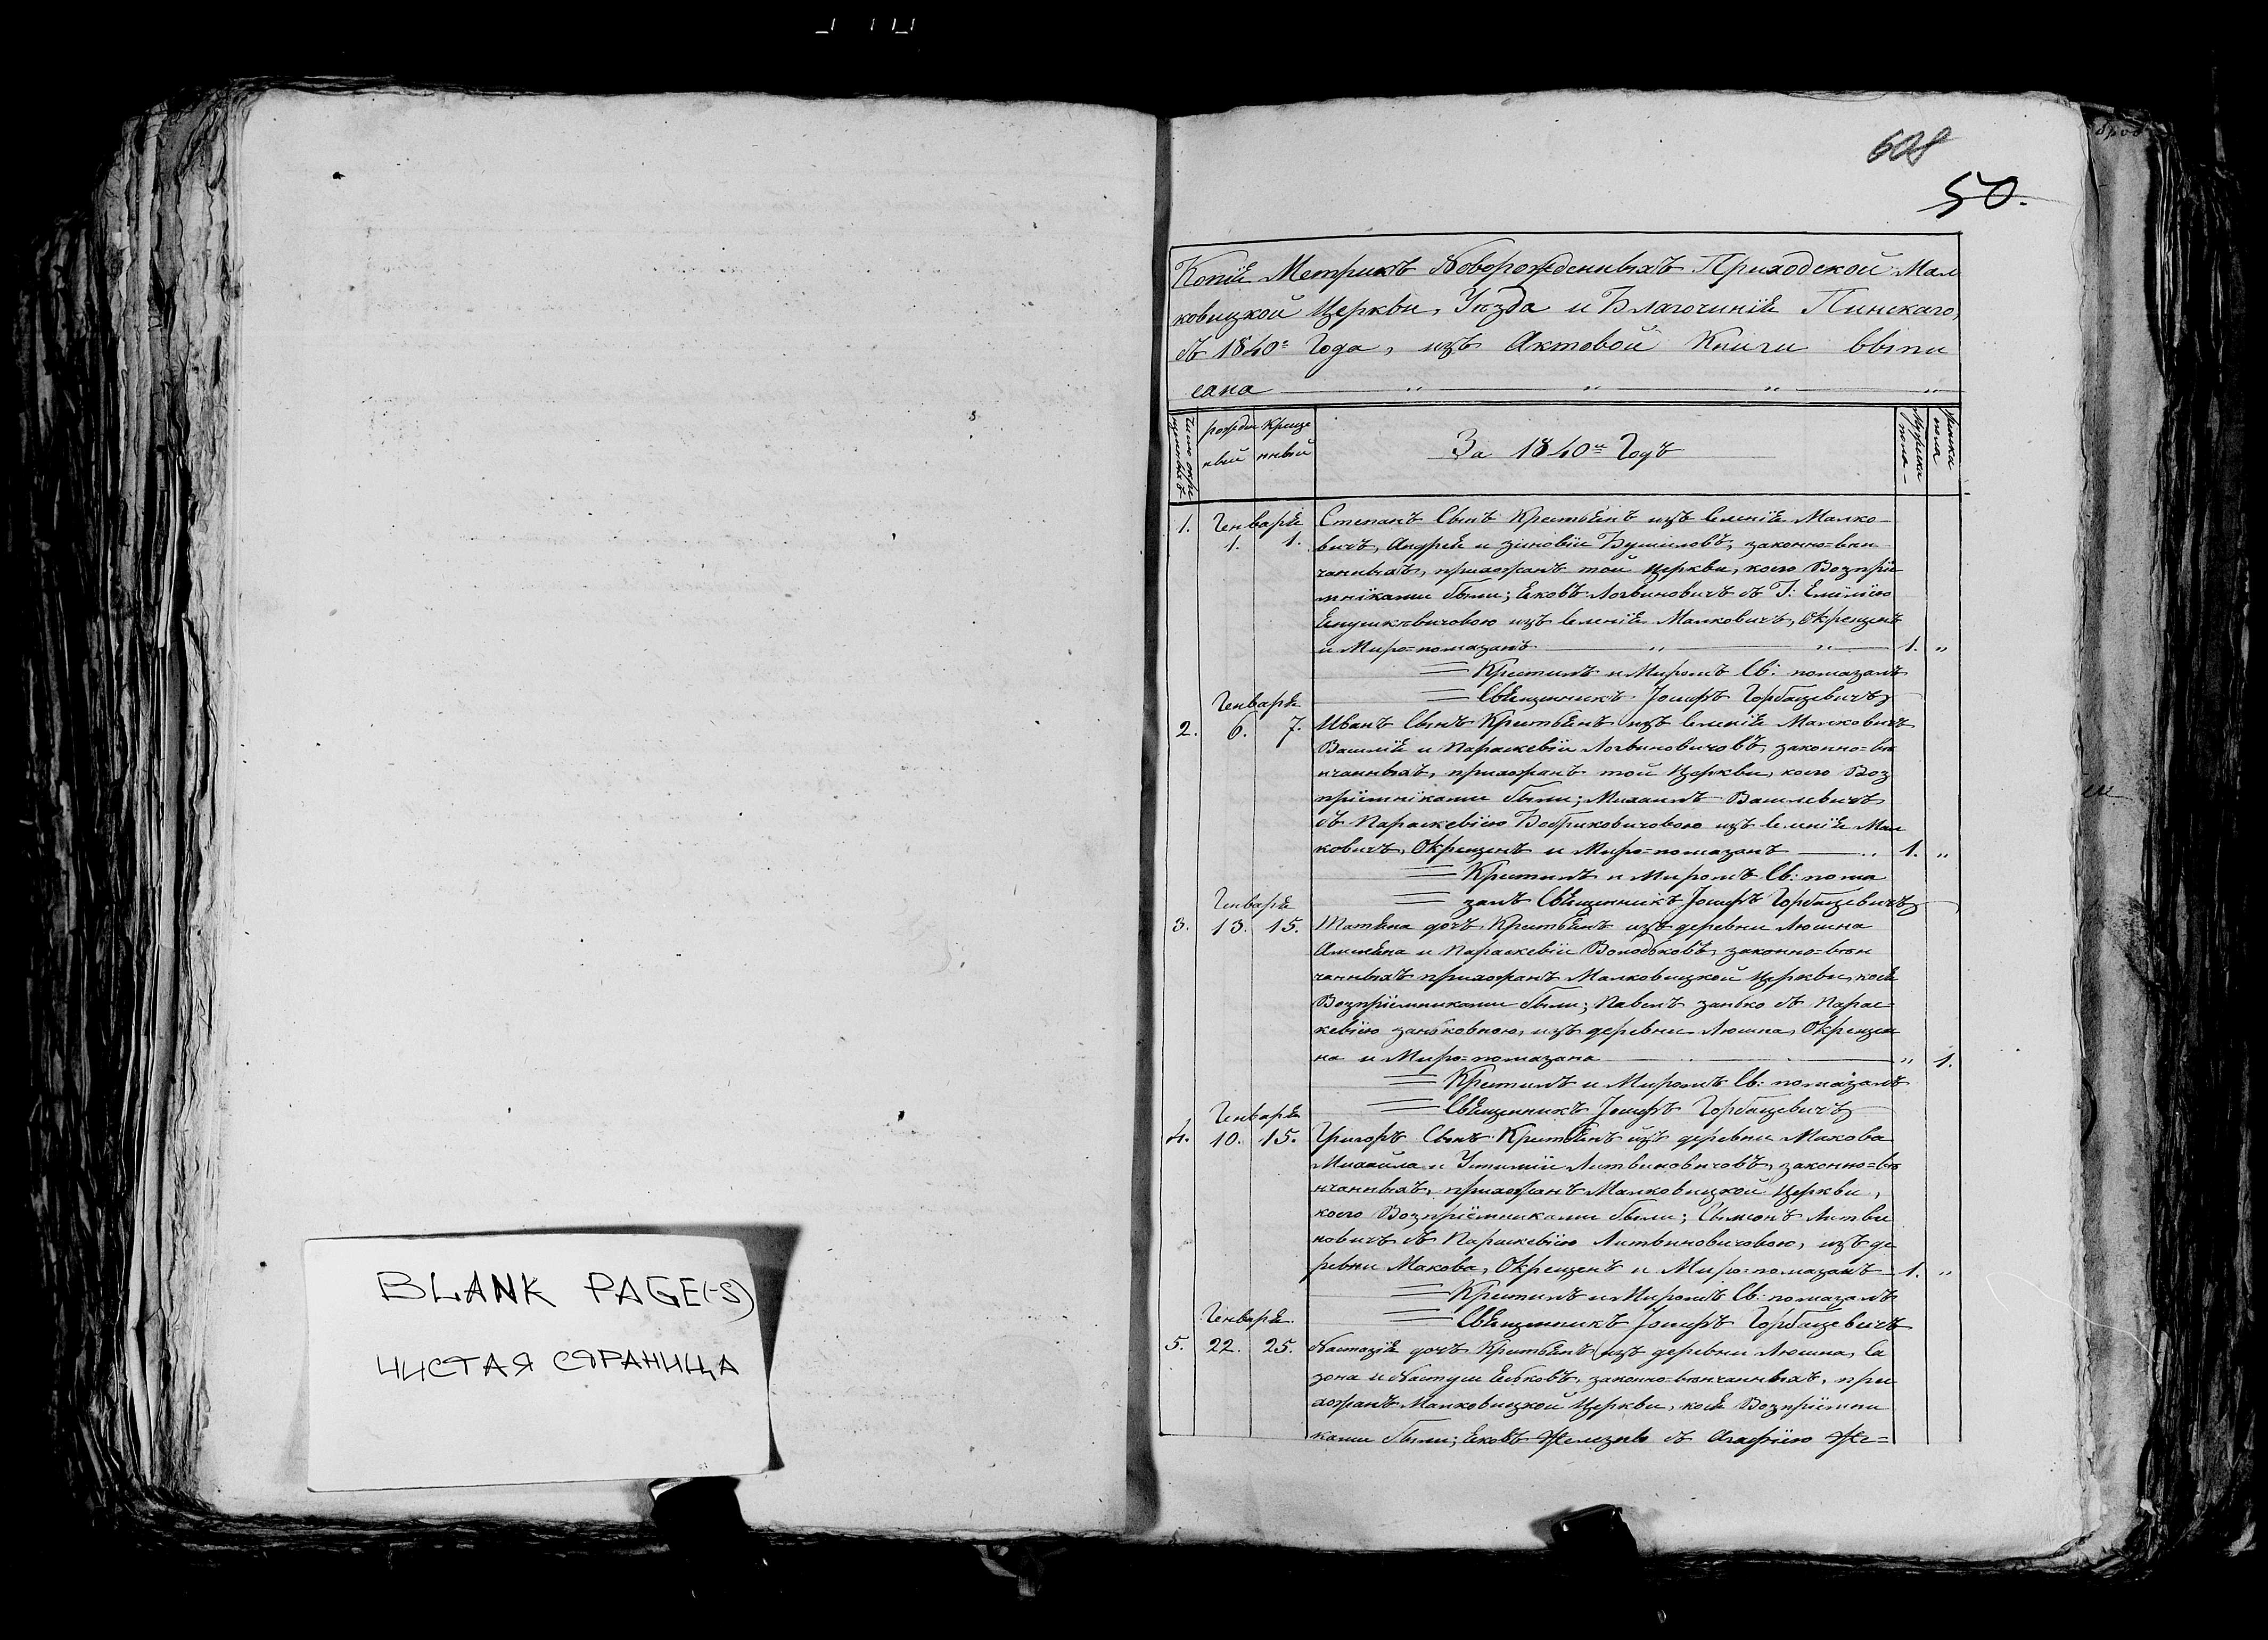 608
50.
Копіѣ Метрикъ Новорожденныхъ Приходской Мал
ковицкой Церкви, Уѣзда и Благочиніѣ Пинскаго,
съ 1840= Года, изъ Актовой Книги выпи
сана
рожде Креще
ный нный
За 1840й Годъ
мужска пола
женска пола
1. Генварѣ 1. 1. Степанъ Сынъ Крестьѣнъ изъ Селеніѣ Малко
вичъ, Андреѣ и Зіновіи законно=вѣн
чанныхъ, прихожанъ той Церкви, коего Возпріе
мніками были; Ековъ Логвиновичъ съ Г:
изъ Селеніѣ Малковичъ, Окрещенъ
и Миро=помазанъ 1. "
Крестилъ и Миромъ Св: помазалъ
Свѣщенникъ Іосифъ Горбацевичъ
Генварѣ
2. 6. 7. Иванъ Сынъ Крестьѣнъ изъ Селеніѣ Малковичъ
Василіѣ и Параскевіи Логвиновичовъ, законно=вѣ
нчанныхъ, прихожанъ той Церкви, коего Воз
пріемніками были; Михаилъ Василевичъ
съ Параскевіею Бобриковичовою изъ Селеніѣ Мал
ковичъ, Окрещенъ и Миро=помазанъ 1. "
Крестилъ и Миромъ Св: пома
залъ Свѣщенникъ Іосифъ Горбацевичъ
Генварѣ
3. 13. 15. Татѣна дочъ Крестьѣнъ изъ деревни Люшна
и Параскевіи законно=вѣн
чанныхъ прихожанъ Малковицкой Церкви, коеѣ
Возпріемниками были; Павелъ Занько съ Парас=
кевіею Заньковною, изъ деревни Люшна, Окрещен
на и Миро=помазана " 1.
Крестилъ и Миромъ Св: помазалъ
Свѣщенникъ Іосифъ Горбацевичъ
Генварѣ
4. 10. 15. Григоръ Сынъ Крестьѣнъ изъ деревни Макова
Михайла и Устиніи Литвиновичовъ, законно=вѣ
нчанныхъ, прихожанъ Малковицкой Церкви,
коего Возпріемниками были; Сымеонъ Литви
новичъ съ Параскевіею Литвиновичовою, изъ де
ревни Макова, Окрещенъ и Миро=помазанъ 1. "
Крестилъ и Миромъ Св: помазалъ
Свѣщенникъ Іосифъ Горбацевичъ
Генварѣ.
5. 22. 25. Настазіѣ дочъ Крестьѣнъ изъ деревни Люшна, Са
зона и Настуси законно=вѣнчанныхъ, при
хожанъ Малковицкой Церкви, коеѣ Возпріемни
ками были; Ековъ съ Агафіею Же=
BLANK PAGE(-S)
ЧИСТАЯ СТРАНИЦА